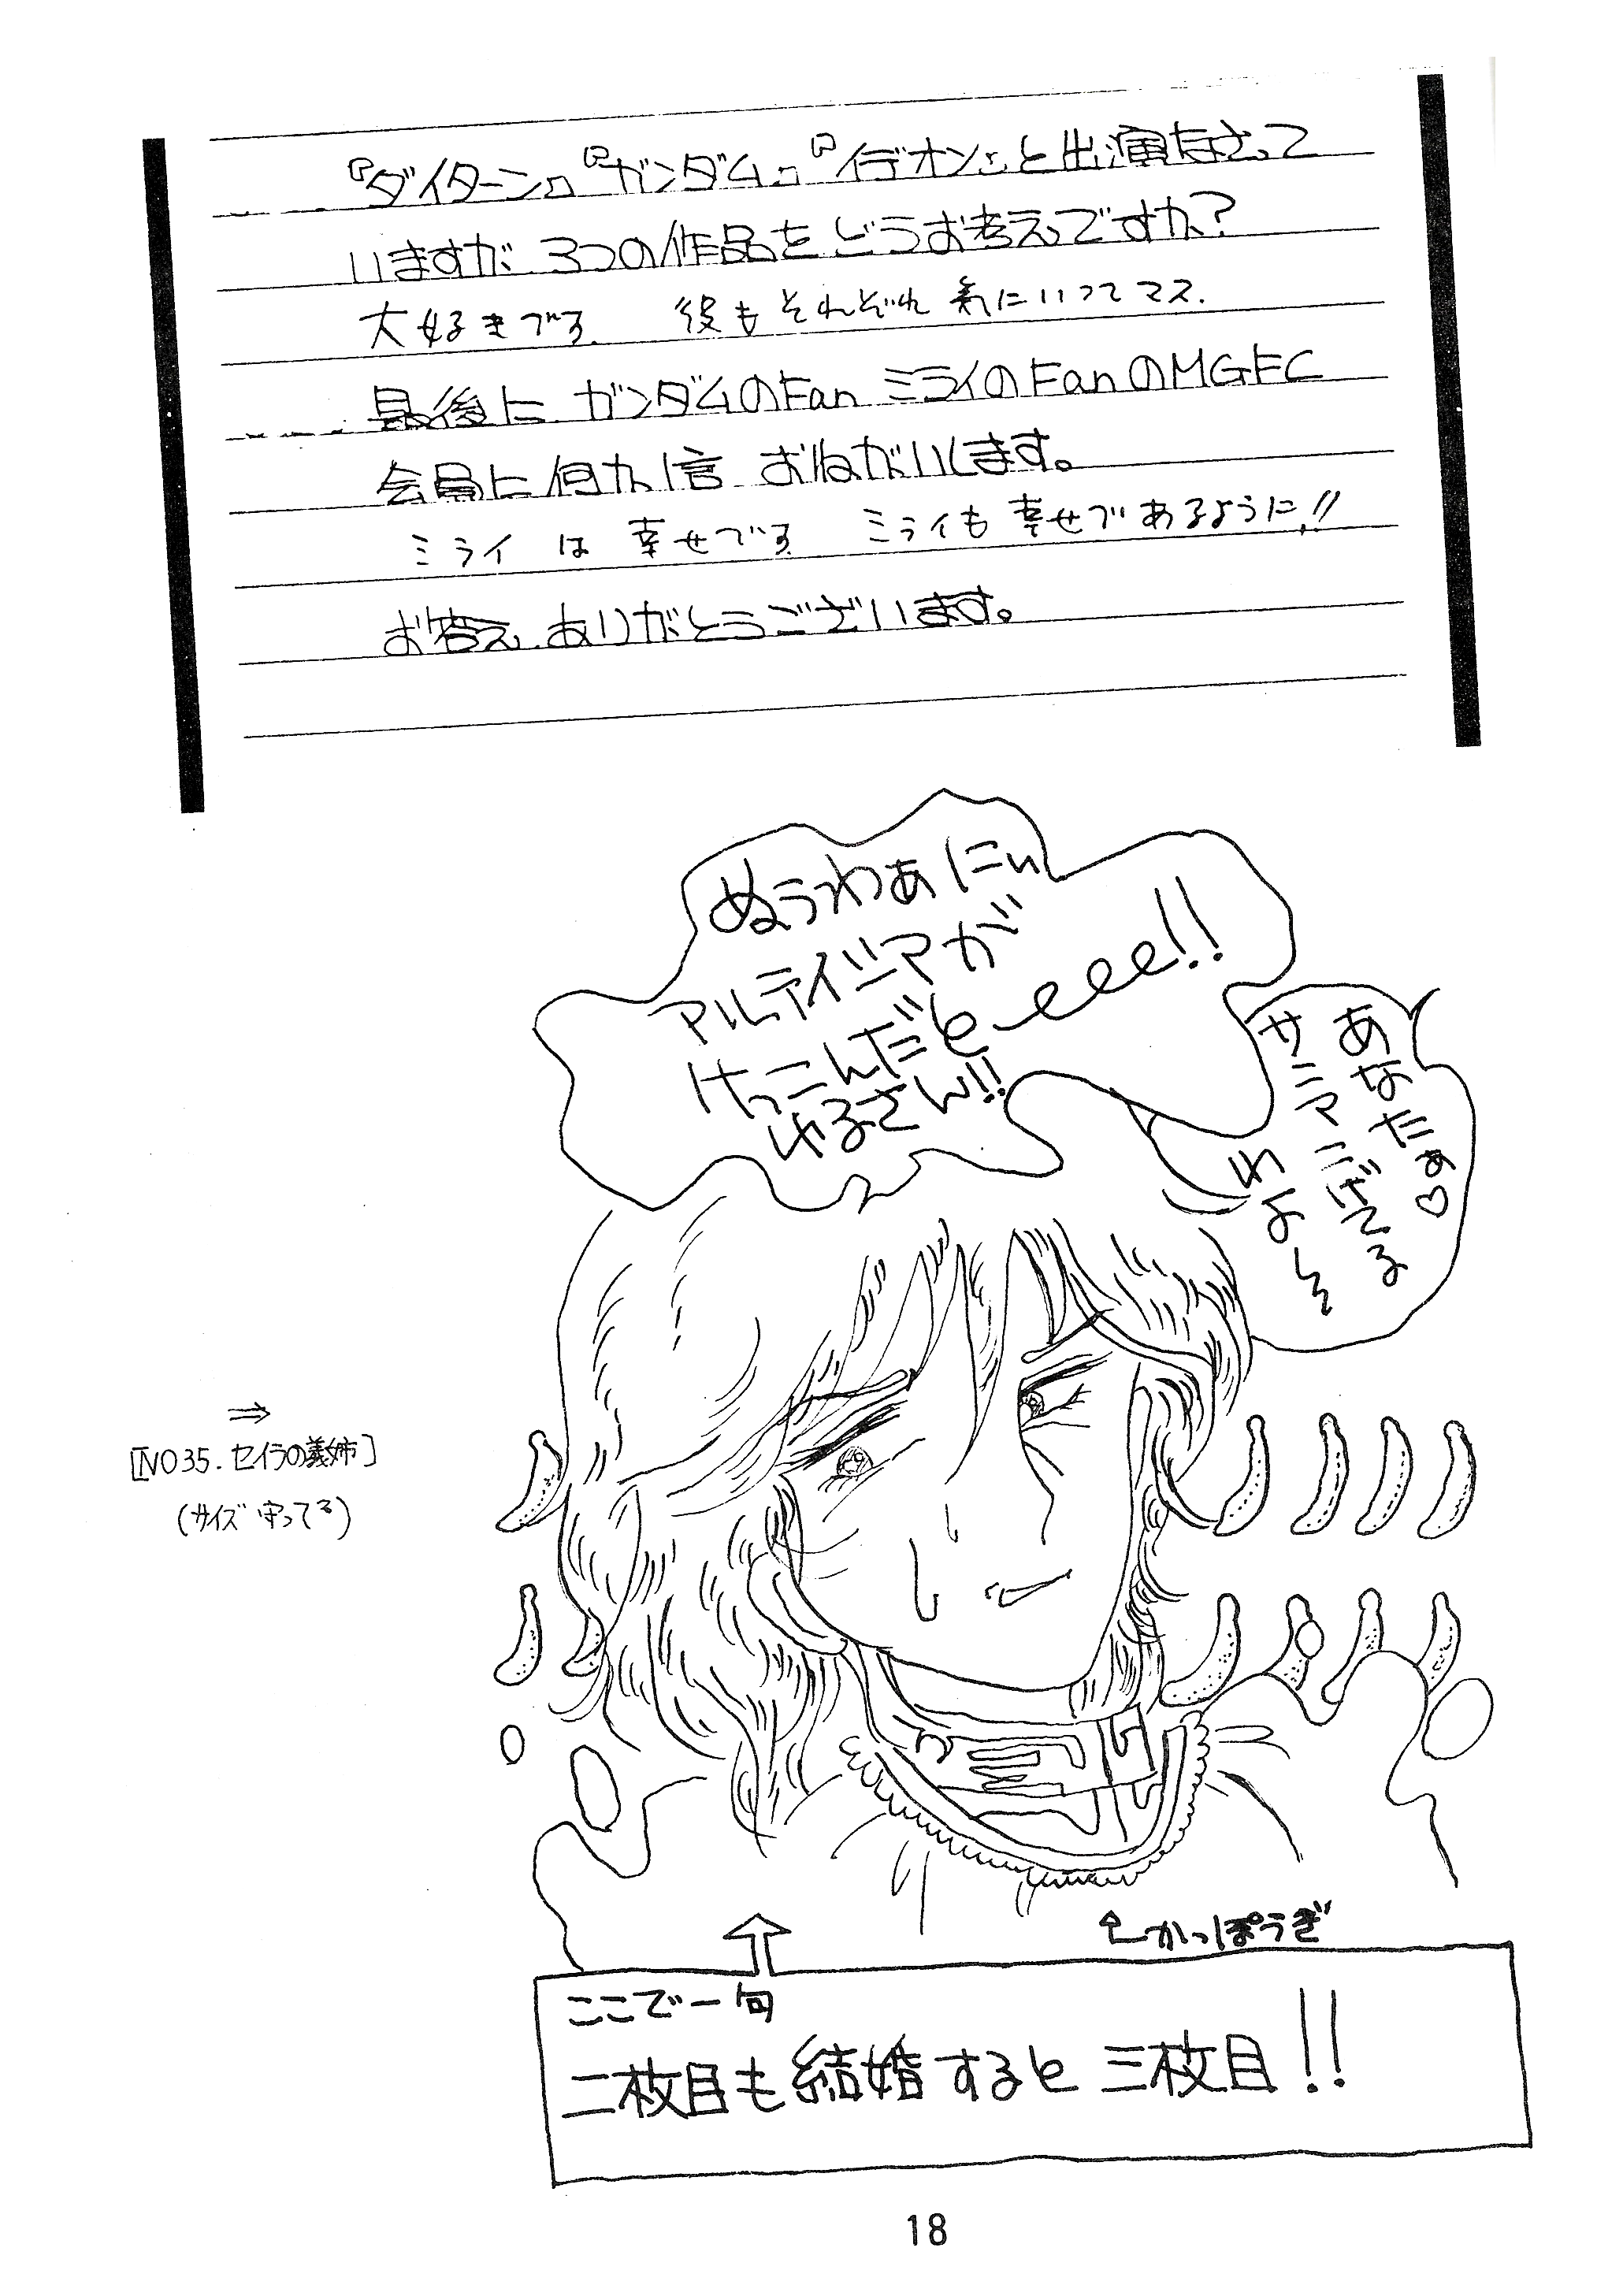 『ダイターン』『ガンダム』『イデオン』と出演なさって
いますが 3つの作品をどうお考えですか?
大好きです. 役もそれぞれ 気にいってマス.
最後に ガンダムのFan ミライのFanのMGFC
会員に何か1言 おねがいします。
ミライ は 幸せです. ミライも 幸せであるように!!
お答え ありがとうございます。
ぬぅうわぁにぃ
アルテイシアが
けっこんだとeeee!!
ゆるさん!!
あなたぁ♡
サンマこげてる
わよぉ
⇒
[NO35. セイラの義姉]
(サイズ 守ってる)
かっぽうぎ
ここで一句
二枚目も結婚すると 三枚目!!
18